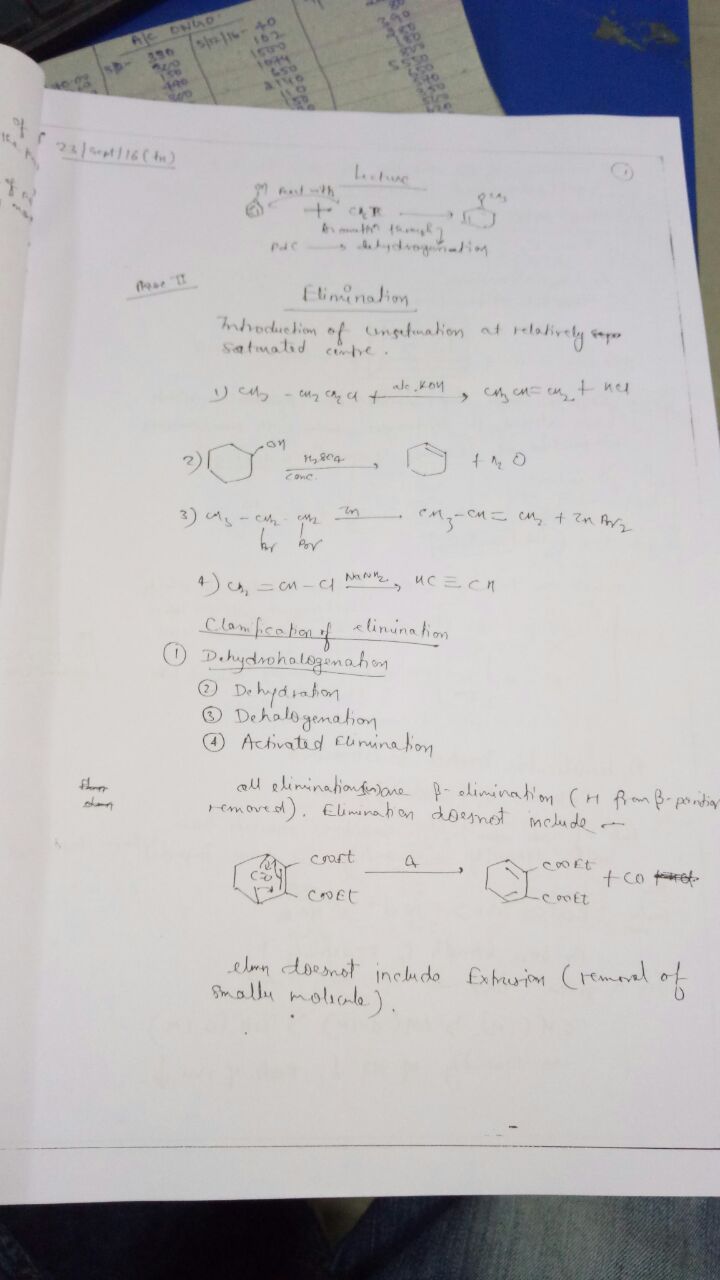 A/C
5/12/16 - 40
102
1500
1094
650
23/Sept/16 (fn)
1
Lecture
OH React with
+ CH₂
Pd C → dehydrogenation
Phase II
Elimination
Introduction of unsaturation at relatively
saturated centre.
1) CH₃ - CH₂ CH₂ Cl + alc. KOH → CH₃ CH = CH₂ + HCl
2) OH H₂SO₄ conc. → + H₂O
3) CH₃ - CH₂ - CH₂ Zn → CH₃-CH = CH₂ + Zn Br₂
Br Br
4) CH₂ = CH - Cl NaNH₂ → HC ≡ CH
Classification of elimination
① Dehydrohalogenation
② Dehydration
③ Dehalogenation
④ Activated Elimination
all eliminations are β-elimination (H from β-position
removed). Elimination doesnot include -
C=O COOEt Δ → COOEt + CO
COOEt COOEt
elmn doesnot include Extrusion (removal of
smaller molecule).